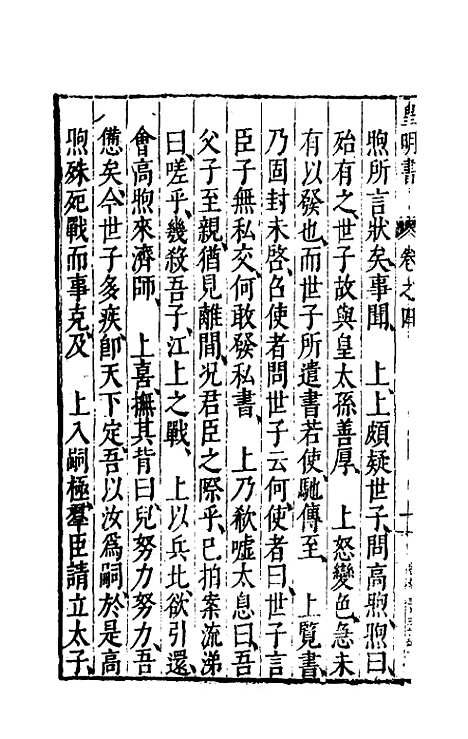 皇明書 卷之四
煦所言狀矣、事聞、上、上頗疑世子、問高煦、煦曰、
殆有之、世子故與皇太孫善厚、上怒變色、忽未
有以發也、而世子所遣書若使、馳傳至、上覽書、
乃固封未啓、召使者問世子云何、使者曰、世子言
臣子無私交、何敢發私書、上乃欷噓太息曰、吾
父子至親、猶見離間、况君臣之際乎、已拍案流涕
曰、嗟乎、幾殺吾子、江上之戰、上以兵北、欲引還、
會高煦來濟師、上喜、撫其背曰、兒努力努力、吾
憊矣、今世子多疾、卽天下定、吾以汝爲嗣、於是高
煦殊死戰而事克、及 上入嗣極、羣臣請立太子、